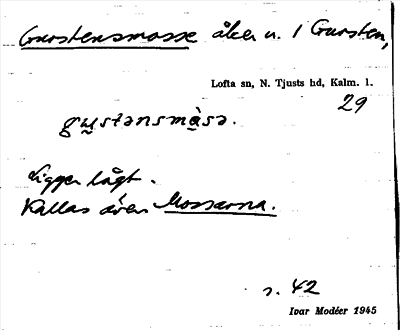 Gurstensmosse åker u. 1 Gursten,
Lofta sn, N. Tjusts hd, Kalm. l.
29
gu̬stənsmåsə.
Ligger lågt.
Kallas även Mossarna.
s. 42
Ivar Modéer 1945